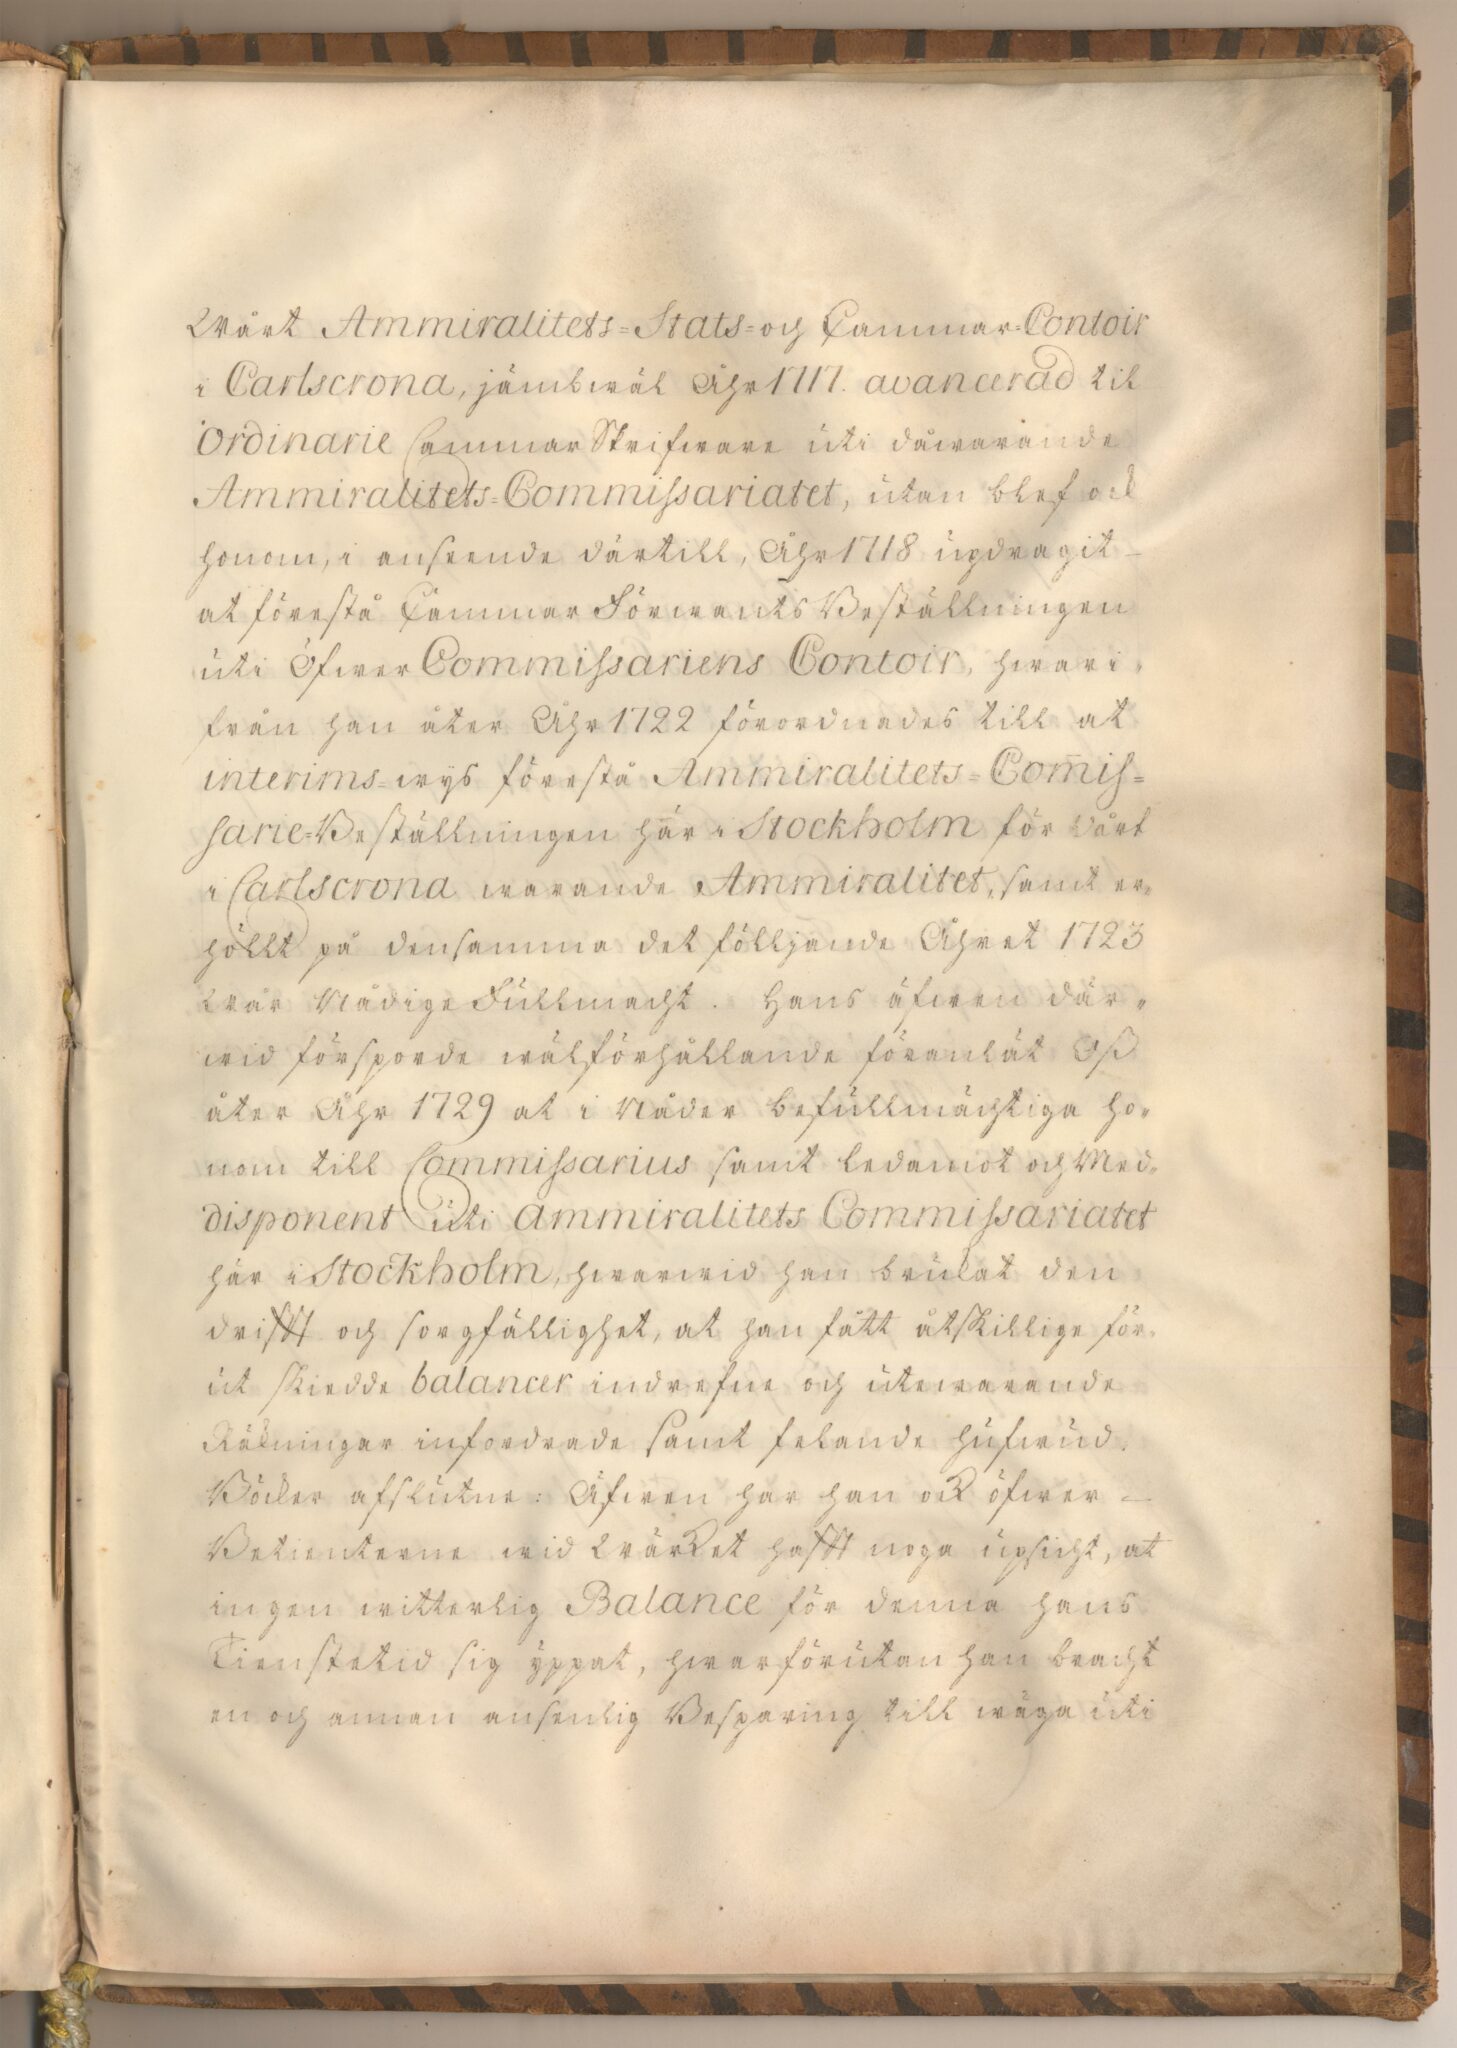 Wårt Ammiralitets=Stats=och Cammar=Contoir
i Carlscrona, jämbwäl Åhr 1717. avancerad til
Ordinarie Cammar Skrifware uti dåwarande
Ammiralitets=Commissariatet, utan blef ock
honom, i anseende därtill, Åhr 1718 updragit
at förestå Cammar Förwants Beställningen
uti Öfwer Commissariens Contoir, hwari-
från han åter Åhr 1722 förordnades till at
interims=wys förestå Ammiralitets=Com̃is=
sarie=Beställningen här i Stockholm för Wårt
i Carlscrona warande Ammiralitet, samt er-
höllt på densamma det följande Åhret 1723
Wår Nådige Fullmacht. Hans äfwen där-
wid försporde wälförhållande föranlät Oß
åter Åhr 1729 at i Nåder befullmächtiga ho-
nom till Commissarius samt Ledamot och Med-
disponent uti Ammiralitets Commissariatet
här i Stockholm, hwarwid han brukat den
drifft och sorgfällighet, at han fått åtskillige för-
ut skiedde balancer indrefne och utewarande
Räkningar infordrade samt felande hufwud-
Böcker afslutne: Äfwen har han ock öfwer
Betienterne wid Wärcket hafft noga upsicht, at
ingen witterlig Balance för denna hans
Tienstetid sig yppat, hwarförutan han bracht
en och annan ansenlig Besparing till wäga uti